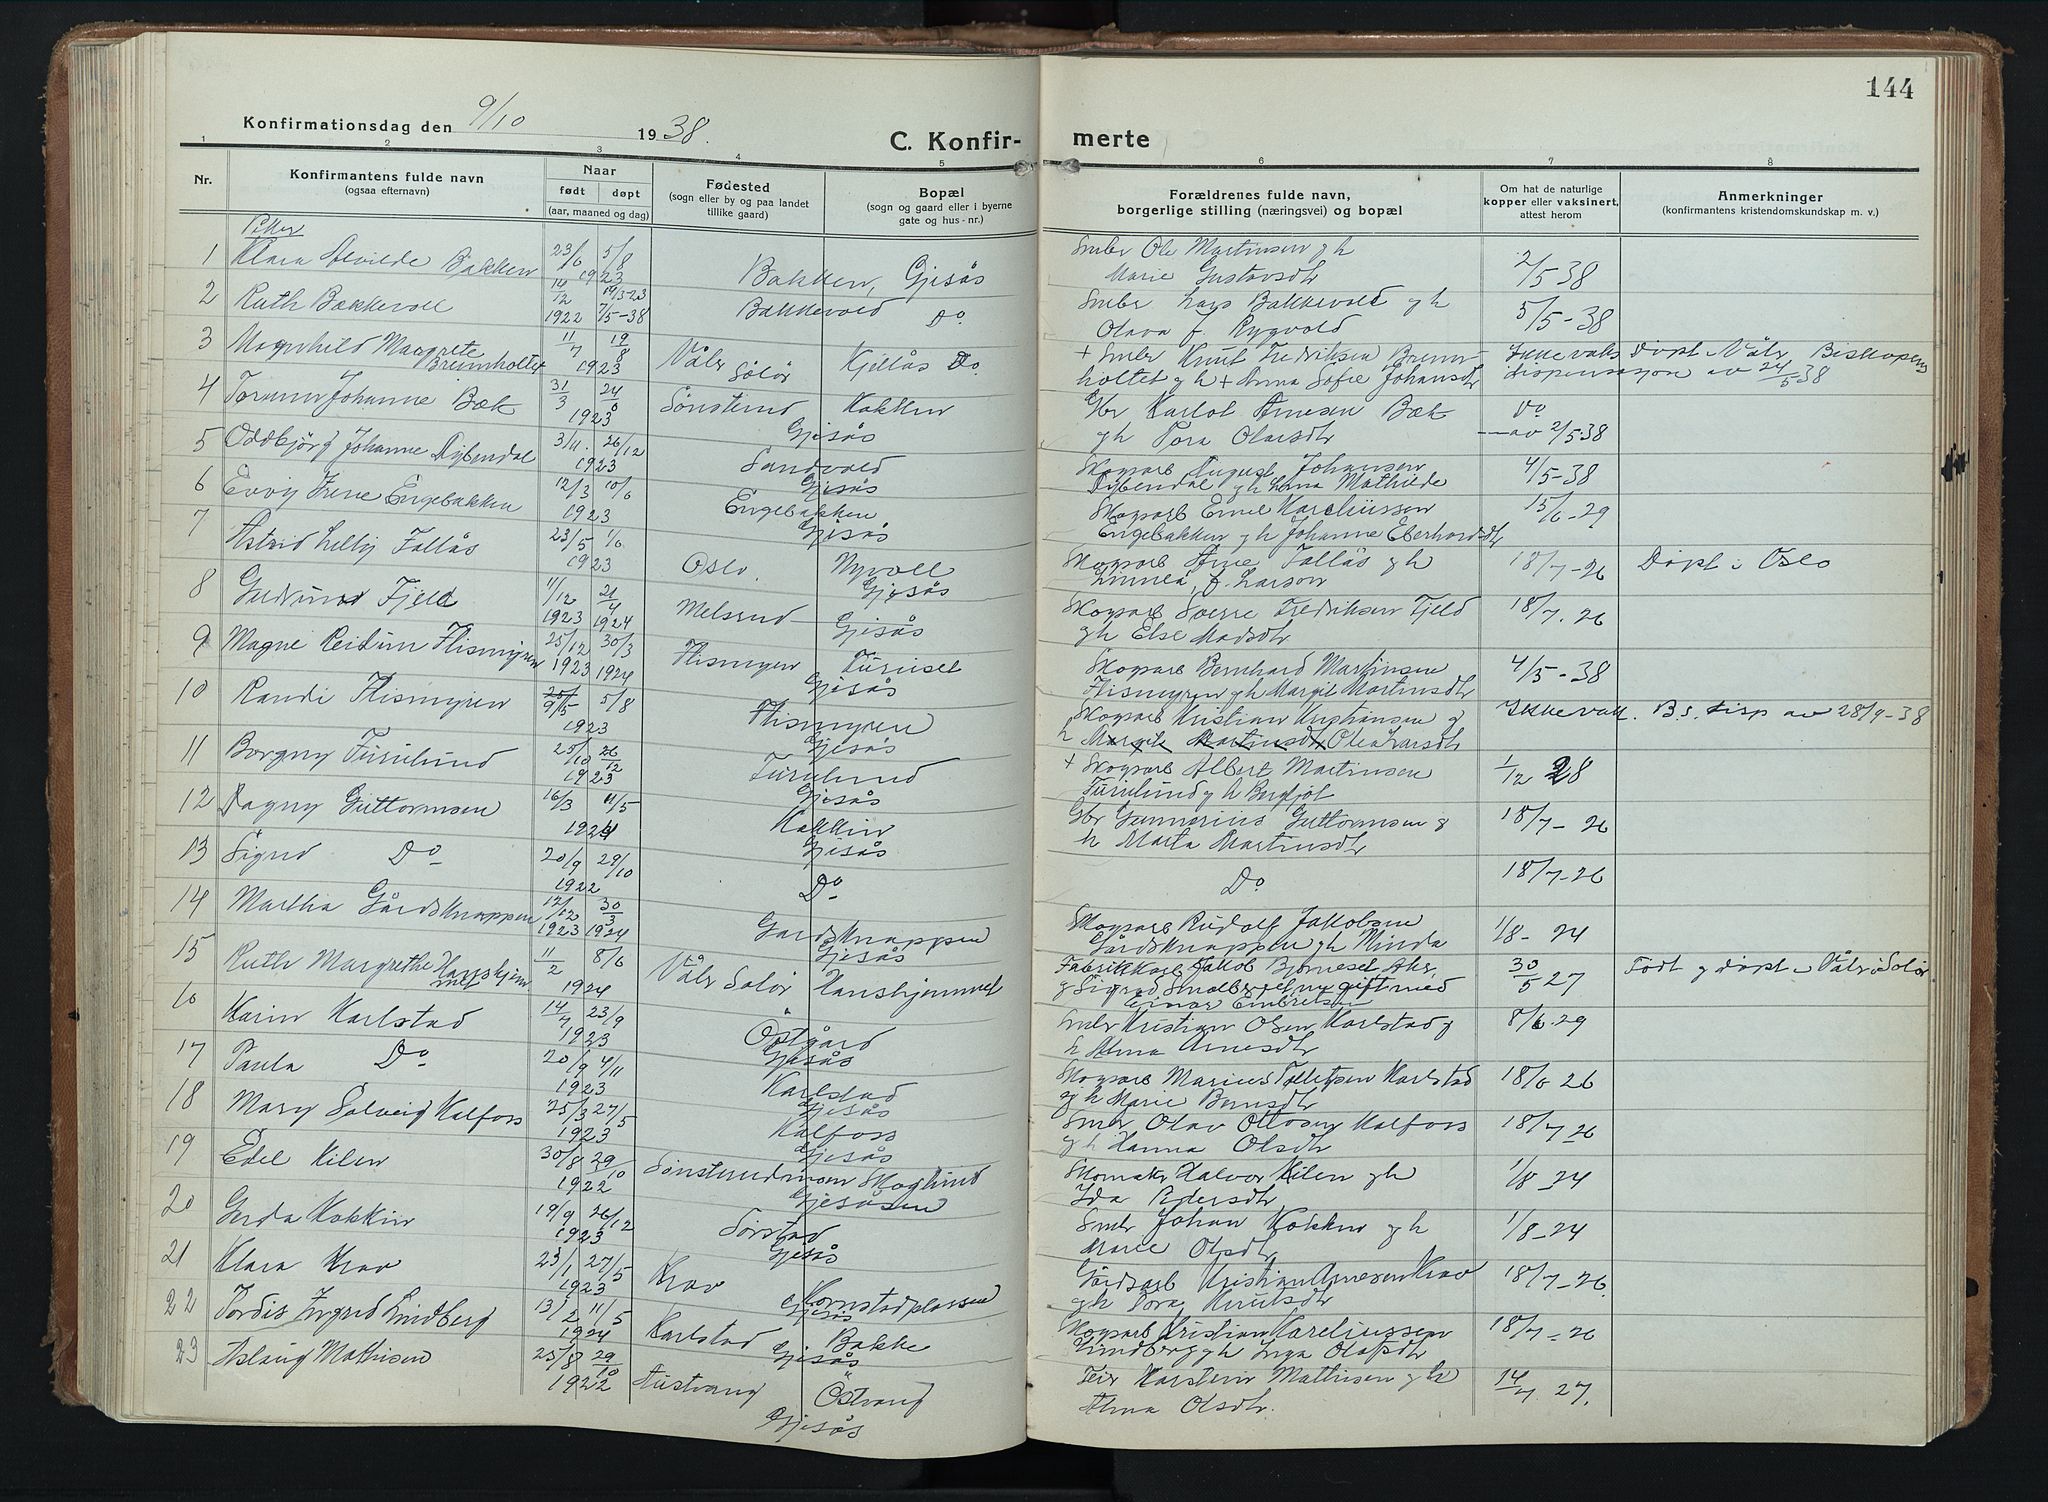 144
Konfirmationsdag den 9/10 1938.
C. Konfir-
merte
1 2 3 4 5 6 7 8
Nr.
Konfirmantens fulde navn
(ogsaa efternavn)
Naar
født døpt
(aar, maaned og dag)
Fødested
(sogn eller by og paa landet
tillike gaard)
Bopæl
(sogn og gaard eller i byerne
gate og hus-nr.)
Forældrenes fulde navn,
borgerlige stilling (næringsvei) og bopæl
Om hat de naturlige
kopper eller vaksinert,
attest herom
Anmerkninger
(konfirmantens kristendomskundskap m. v.)
Piker
1 Klara Alvilde Bakken 23/6 5/8 1923 Bakken, Gjesås Smbr Ole Martinsen og h Marie Gustavsdtr 2/5 38
2 Ruth Bakkevoll 14/12 1922 19/3-23 7/5-38 Bakkevold Do Smbr Lars Bakkevold og h Olava f. Rygvold 5/5-38
3 Magnhild Margrete Brennholtet 11/7 19/8 1923 Våler Solør Kjellås Do + Smbr Knut Fredriksen Brennholtet og h + Anna Sofie Johansdtr Ikke vaks Døpt i Våler. Biskopens dispensasjon av 24/5 38
4 Torunn Johanne Bæk 31/3 24/6 1923 Sønsterud Kokkin Gjesås Gbr Karlot Arnesen Bæk og h Tora Olavsdtr Do — av 2/5 38
5 Oddbjörg Johanne Dybendal 3/11. 26/12 1923 Sandvold Gjesås Skogsarb August Johansen Dybendal og h Lina Mathilde 4/5-38
6 Evvy Irene Engebakken 12/3 10/6 1923 Engebakken Gjesås Skogsarb Emil Kareliussen Engebakken og h Johanne Eberhardsdtr 15/6-29
7 Astrid Lelly Fallås 23/5 1/6 1923 Oslo. Nyvoll Gjesås Skogsarb Arne Fallås og h Linnea, f. Larson 18/7-26 Døpt i Oslo
8 Gudrun Fjeld 11/12 1923 21/4 1924 Melsrud Gjesås Skogsarb Sverre Fredriksen Fjeld og h Else Madsdtr 18/7.26
9 Magne Reidun Flismyren 25/12 1923 30/3 1924 Flismyren Furuset Gjesås Skogsarb Bernhard Martinsen Flismyren og h Margit Martinsdtr 4/5-38
10 Randi Flismyren 9/5 5/8 1923 Flismyren Gjesås Skogsarb Kristian Kristiansen og h Margit Martinsdtr Olea Larsdtr Ikke vak. B.s. disp av 28/9-38
11 Borgny Furulund 25/10 26/12 1923 Furulund Gjesås + Skogsarb Albert Martinsen Furulund og h Bergljot 1/12 28
12 Dagny Guttormsen 16/3 11/5 1924 Kokkin Gjesås Gbr Gunnerius Guttormsen og h Marta Martinsdtr 18/7-26
13 Sigrid Do 20/9 29/10 1922 Do Do 18/7-26
14 Martha Gårdsknappen 12/12 1923 30/3 1924 Gardsknappen Gjesås Skogsarb Rudolf Jakobsen Gårdsknappen og h Minda 1/8-24
15 Ruth Margrethe Hanshjemmet 11/2 8/6 1924 Våler Solør Hanshjemmet Fabrikkarb Jakob Bjørneset Aker, og Sigrid Smedberget nu gift med Einar Embretsen 30/5 27 Født og døpt i Våler i Solør
16 Karin Karlstad 14/7 23/9 1923 Östgård Gjesås Smbr Kristian Olsen Karlstad og h Alma Arnesdtr 8/6-29
17 Paula Do 20/9 4/11 1923 Karlstad Gjesås Skogsarb Marius Tollefsen Karlstad og h Marie Berntsdtr 18/6 26
18 Mary Solveig Kalfoss 25/3 27/5 1923 Kalfoss Gjesås Smbr Olav Ottosen Kalfoss og h Hanna Olsdtr 18/7 26
19 Edel Kilen 30/8 29/10 1922 Sønsterudmoen Skoglund Gjesåsen Skomaker Halvor Kilen og h Ida Pedersdtr 1/8-24
20 Gerda Kokkin 19/9 26/12 1923 Sørstad Gjesås Smbr Johan Kokkin og h Marie Olsdtr 1/8-24
21 Klara Krav 23/1 27/5 1923 Krav Kornstadplassen Gjesås Gårdsarb Kristian Arnesen Krav og h Tora Knutsdtr 18/7-26.
22 Tordis Ingrid Lindberg 13/2 11/5 1924 Karlstad Bakke Gjesås Skogsarb Kristian Kareliussen Lindberg og h Inga Olafsdtr 18/7-26
23 Aslaug Mathisen 25/8 29/10 1922 Austvang Östvang Gjesås Feier Karsten Mathisen og h Alma Olsdtr. 14/7 27.